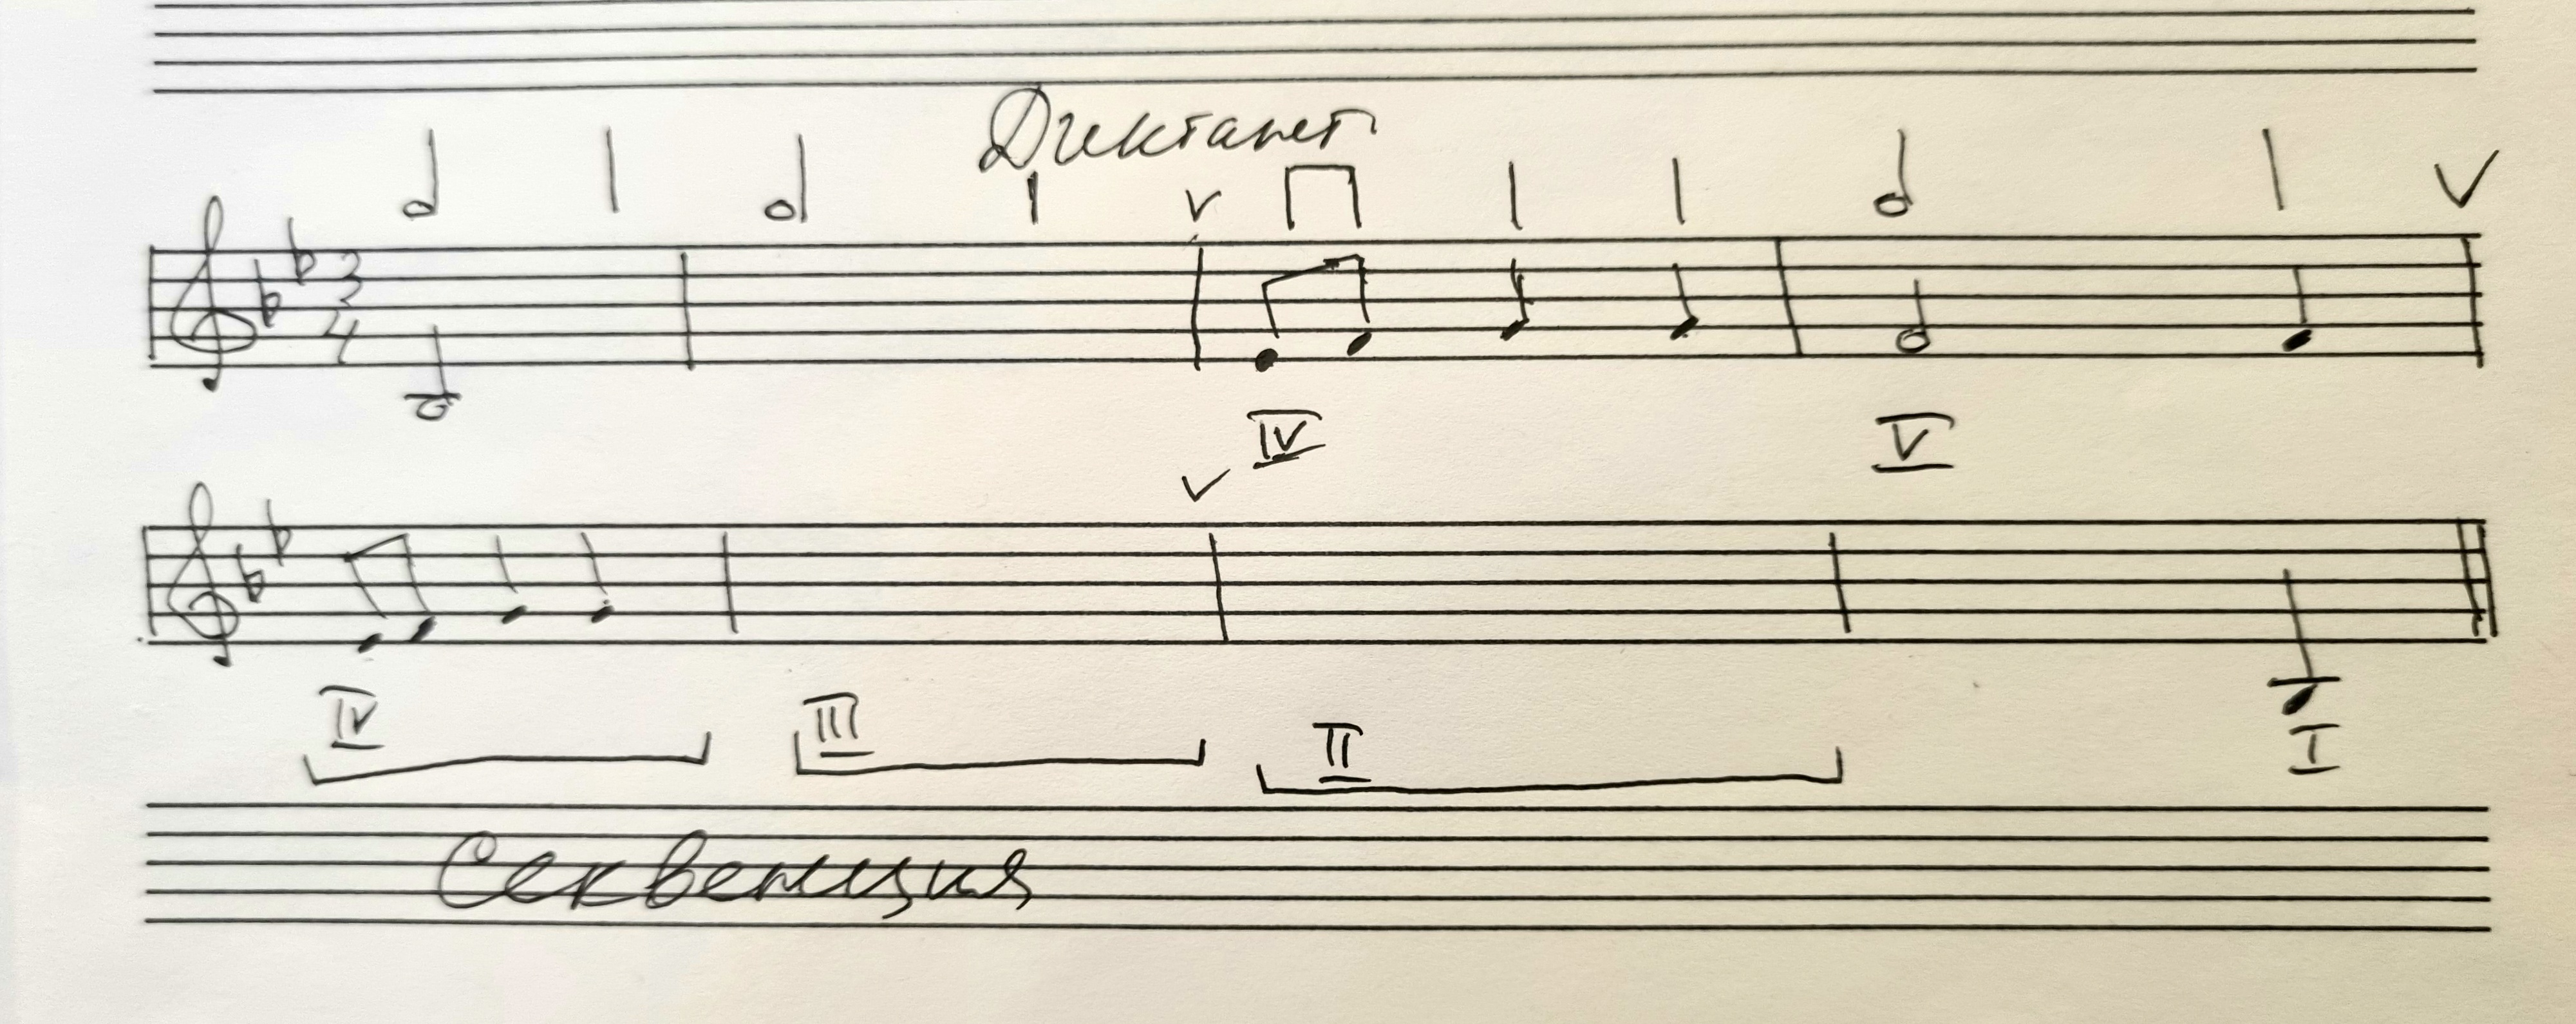 Диктант
3
4
IV V
IV III II I
Секвенция